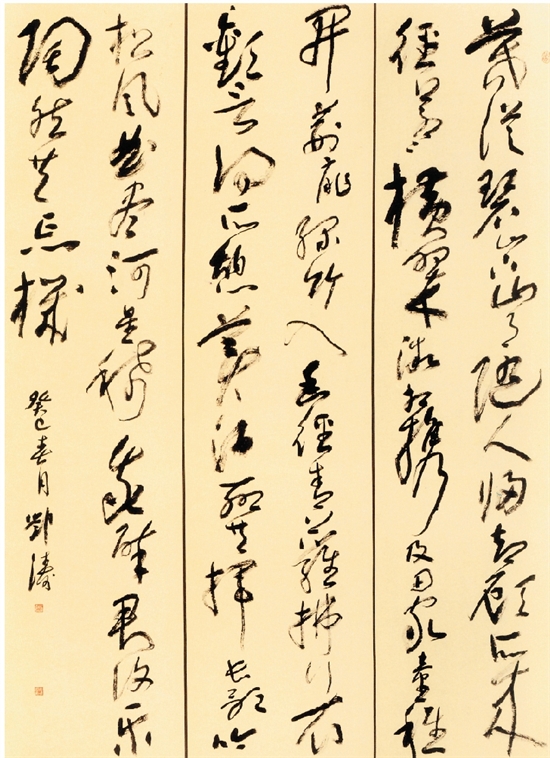 暮從碧山下山月隨人歸却顧所來
徑蒼蒼橫翠微相攜及田家童稚
開荊扉綠竹入幽徑青蘿拂行衣
歡言得所憩美酒聊共揮長歌吟
松風曲盡河星稀我醉君復樂
陶然共忘機
癸巳春月